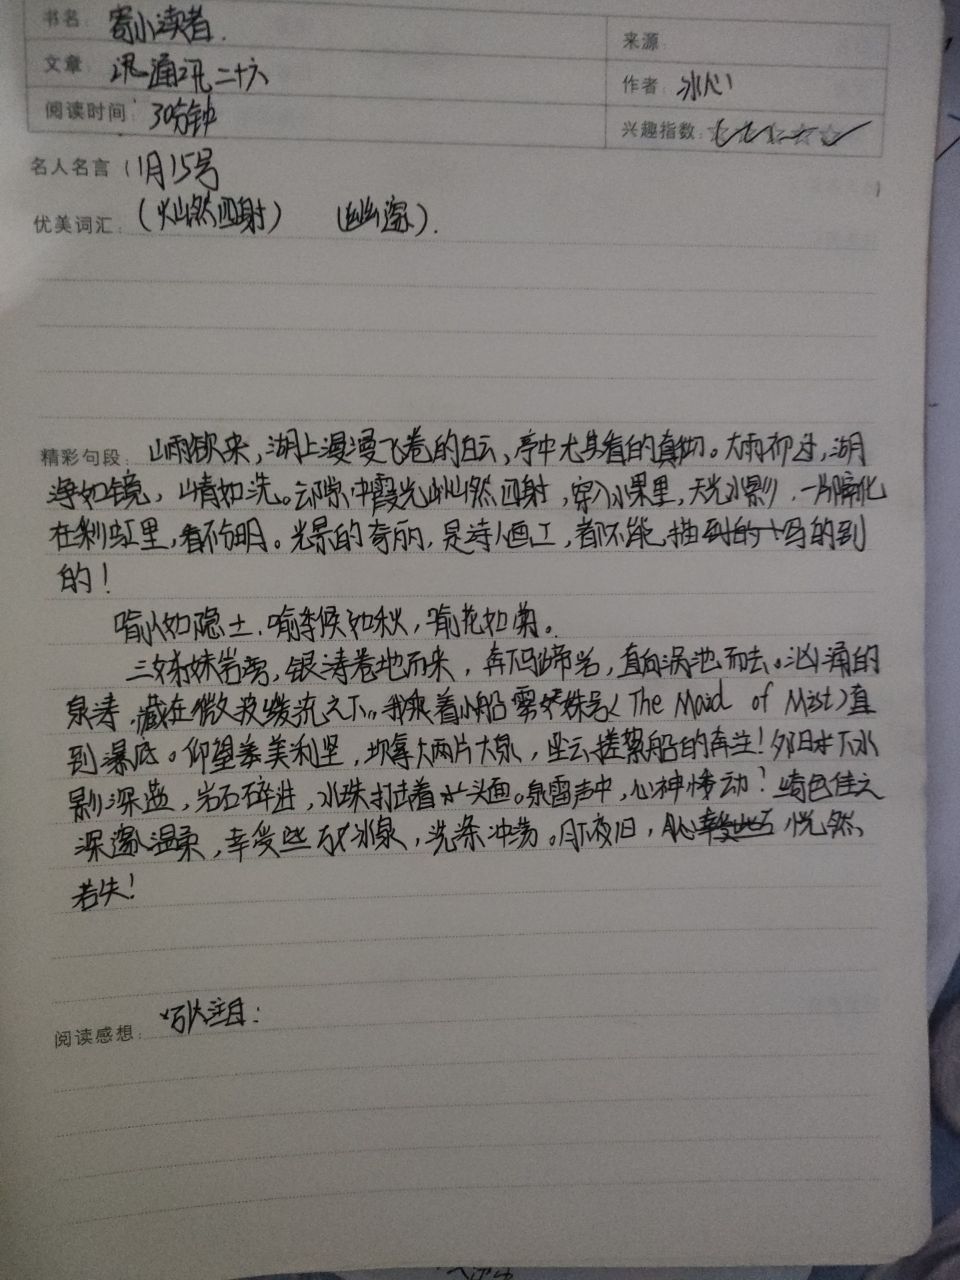 书名: 寄小读者.
来源:
文章: 通讯二十六
作者: 冰心
阅读时间: 30分钟
兴趣指数: ☆☆☆☆☆
名人名言 (1月15号
优美词汇: (灿然四射) (幽邃).
精彩句段: 山雨欲来,湖上漫漫飞卷的白云,亭中尤其看的真切。大雨初过,湖
净如镜,山情如洗。云隙中霞光灿然四射,穿入水果里,天光水影,一片
在彩虹里,看不分明。光景的奇丽,是诗人画工,都不能描 的到
的!
喻人如隐士,喻季候如秋,喻花如菊。
三姊妹岩旁,银涛卷地而来,奔马 ,直向涡池而去。汹涌的
泉涛,藏在微波缓流之下。我乘着小船雾姝号(The Maid of Mist)直
到瀑底。仰望美利坚, 两片大泉,坠云搓絮船的奔注!夕日水下水
影深蓝,岩石碎迸,水珠打击着头面。泉雷声中,心神悸动!绮色佳之
深邃温柔,幸受些 冰泉,洗涤冲荡。月下夜归, 恍然
若失!
阅读感想: